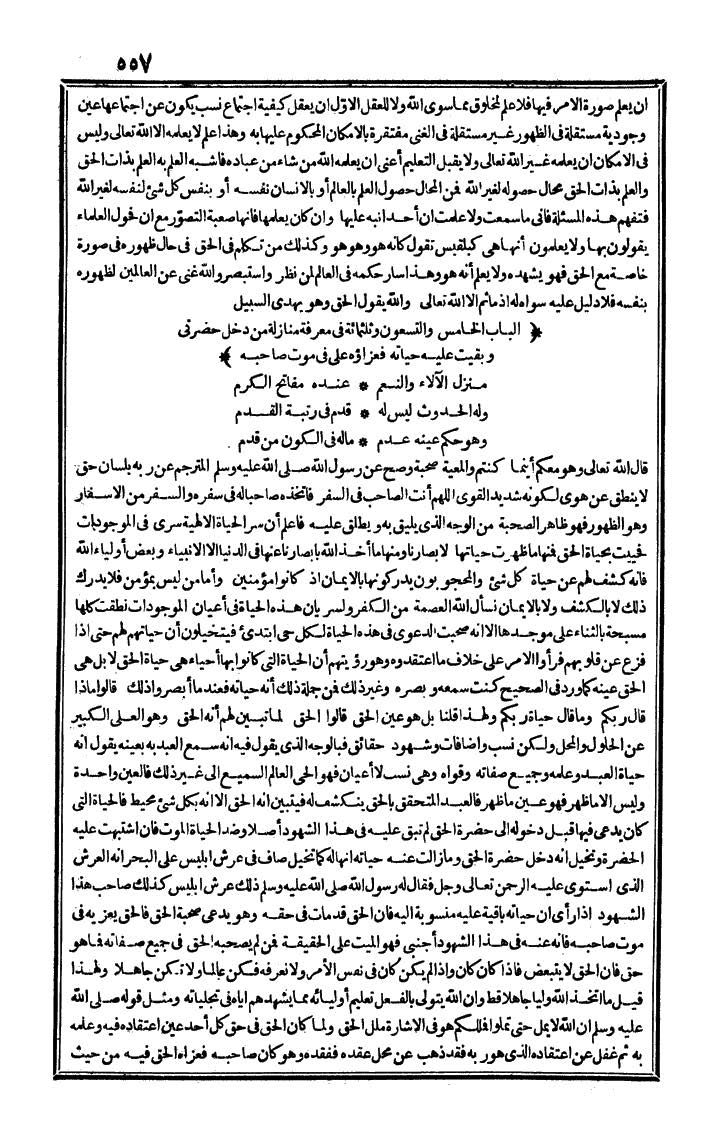 ٥٥٧
ان يعلم صورة الامر فيها فلا علم لمخلوق مما سوى الله ولا للعقل الاول ان يعقل كيفية اجتماع نسب يكون عن اجتماعها عين
وجودية مستقلة فى الظهور غير مستقلة فى الغنى مفتقرة بالامكان المحكوم عليها به وهذا علم لا يعلمه الا الله تعالى وليس
فى الامكان ان يعلمه غير الله تعالى ولا يقبل التعليم أعنى ان يعلمه الله من شاء من عباده فاشبه العلم به العلم بذات الحق
والعلم بذات الحق محال حصوله لغير الله فمن المحال حصول العلم بالعالم أو بالانسان نفسه أو بنفس كل شئ لنفسه لغير الله
فتفهم هذه المسئلة فانى ما سمعت ولا علمت ان أحدا نبه عليها وان كان يعلمها فانها صعبة التصور مع ان فحول العلماء
يقولون بها ولا يعلمون أنها هى كبلقيس تقول كانه هو وهو هو وكذلك من تكلم فى الحق فى حال ظهوره فى صورة
خاصة مع الحق فهو يشهده ولا يعلم أنه هو وهذا سار حكمه فى العالم لمن نظر واستبصر والله غنى عن العالمين لظهوره
بنفسه فلا دليل عليه سواه له اذ ما ثم الا الله تعالى والله يقول الحق وهو يهدى السبيل
﴿ الباب الخامس والتسعون وثلثمائة فى معرفة منازلة من دخل حضرتى
وبقيت عليه حياته فعزاؤه على فى موت صاحبه ﴾
منزل الآلاء والنعم * عنده مفاتح الكرم
وله الحدوث ليس له * قدم فى رتبة القدم
وهو حكم عينه عدم * ماله فى الكون من قدم
قال الله تعالى وهو معكم أينما كنتم والمعية صحبة وصح عن رسول الله صلى الله عليه وسلم المترجم عن ربه بلسان حق
لا ينطق عن هوى لكونه شديد القوى اللهم أنت الصاحب فى السفر فاتخذه صاحبا له فى سفره والسفر من الاسفار
وهو الظهور فهو ظاهر الصحبة من الوجه الذى يليق به ويطلق عليه فاعلم أن سر الحياة الالهية سرى فى الموجودات
فحييت بحياة الحق فنها ما ظهرت حياتها لابصارنا ومنها ما أخذ الله بابصارنا عنها فى الدنيا الا الانبياء وبعض أولياء الله
فانه كشف لهم عن حياة كل شئ والمحجوبون يدركونها بالايمان اذ كانوا مؤمنين وأما من ليس بمؤمن فلا يدرك
ذلك لا بالكشف ولا بالايمان نسأل الله العصمة من الكفر ولسريان هذه الحياة فى أعيان الموجودات نطقت كلها
مسبحة بالثناء على موجدها الا انه صحبت الدعوى فى هذه الحياة لكل حى ابتدئ فيتخيلون أن حياتهم لهم حتى اذا
فزع عن قلوبهم فرأوا الامر على خلاف ما اعتقدوه وهو رؤيتهم أن الحياة التى كانوا بها أحياء هى حياة الحق لا بل هى
الحق عينه كما ورد فى الصحيح كنت سمعه وبصره وغير ذلك فمن جملة ذلك أنه حياته فعند ما أبصروا ذلك قالوا ماذا
قال ربكم وما قال حياة ربكم ولهذا قلنا بل هو عين الحق قالوا الحق لما تبين لهم أنه الحق وهو العلى الكبير
عن الحلول والمحل ولكن نسب واضافات وشهود حقائق فبالوجه الذى يقول فيه انه سمع العبد به بعينه يقول انه
حياة العبد وعلمه وجميع صفاته وقواه وهى نسب لا أعيان فهو الحى العالم السميع الى غير ذلك فالعين واحدة
وليس الا ما ظهر فهو عين ما ظهر فالعبد المتحقق بالحق ينكشف له فيتبين انه الحق الا انه بكل شئ محيط فالحياة التى
كان يدعى فيها قبل دخوله الى حضرة الحق لم تبق عليه فى هذا الشهود أصلا وضد الحياة الموت فان اشتبهت عليه
الحضرة وتخيل انه دخل حضرة الحق وما زالت عنه حياته انها له كما تخيل صاف فى عرش ابليس على البحر انه العرش
الذى استوى عليه الرحمن تعالى وجل فقال له رسول الله صلى الله عليه وسلم ذلك عرش ابليس كذلك صاحب هذا
الشهود اذا رأى ان حياته باقية عليه منسوبة اليه فان الحق قد مات فى حقه وهو يدعى صحبة الحق فالحق يعزيه فى
موت صاحبه فانه عنه فى هذا الشهود أجنبى فهو الميت على الحقيقة فمن لم يصحبه الحق فى جميع صفاته فما هو
حق فان الحق لا يتبعض فاذا كان كان واذا لم يكن كان فى نفس الأمر ولا نعرفه فكن عالما ولا تكن جاهلا ولهذا
قيل ما اتخذ الله وليا جاهلا قط وان الله يتولى بالفعل تعليم أوليائه بما يشهدهم اياه فى تجلياته ومثل قوله صلى الله
عليه وسلم ان الله لا يمل حتى تملوا فمللكم هو فى الاشارة ملل الحق ولما كان الحق فى حق كل أحد عين اعتقاده فيه وعلمه
به ثم غفل عن اعتقاده الذى هو ربه فقد ذهب عن محل عقده ففقده وهو كان صاحبه فعزاه الحق فيه من حيث